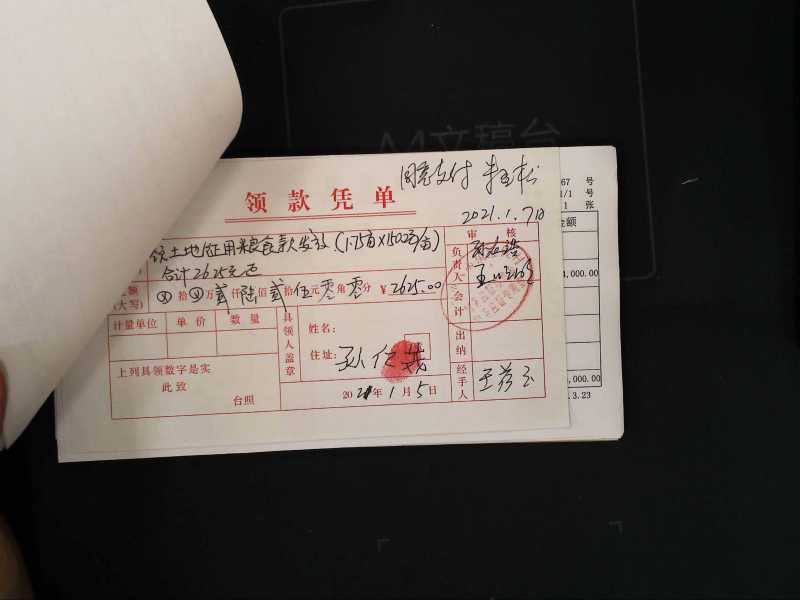 A4文稿台
同意支付
领款凭单
2021.1.7日
67 号
1/1 号
1 张
金额
领土地征用粮食款发放(1.75亩×1500元/亩)
合计2625元正
审核
负责人
金额(大写) ⊗拾⊗万贰仟陆佰贰拾伍元零角零分 ¥2625.00
会计
4,000.00
计量单位 单价 数量
具领人盖章
姓名:
住址:
出纳
上列具领数字是实
此致
台照
2021年1月5日
经手人
,000.00
.3.23